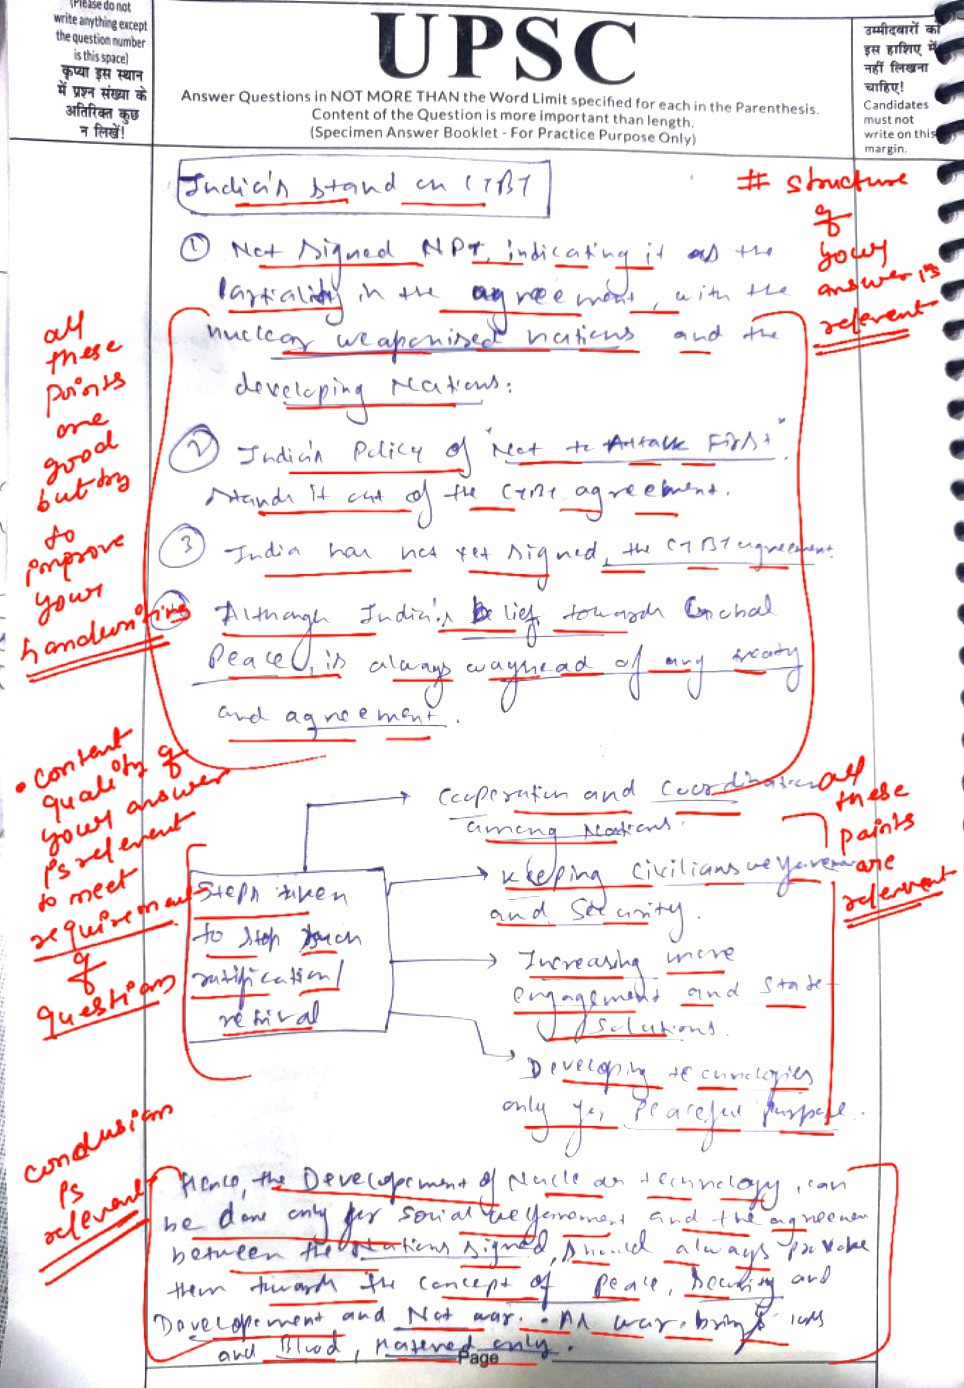 (Please do not
write anything except
the question number
is this space)
कृप्या इस स्थान
में प्रश्न संख्या के
अतिरिक्त कुछ
न लिखें!
UPSC
Answer Questions in NOT MORE THAN the Word Limit specified for each in the Parenthesis.
Content of the Question is more important than length.
(Specimen Answer Booklet - For Practice Purpose Only)
उम्मीदवारों को
इस हाशिए में
नहीं लिखना
चाहिए!
Candidates
must not
write on this
margin.
India's stand on CTBT
# structure
of
your
answer is
relevent
① Not signed NPT, indicating it as the
Partiality in the agreement, with the
nuclear weaponised nations and the
developing Nations.
② India's Policy of "Not to Attack First"
stands it out of the CTBT agreement.
③ India has not yet signed, the CTBT agreement.
Although India's belief towards Global
Peace, is always wayhead of any treaty
and agreement.
all
these
points
are
good
but try
to
improve
your
handwriting
• content
quality of
your answer
is relevent
to meet
requirement
of
questions
Steps taken
to stop such
ratification/
Cooperation and Coordination
among Nations.
Keeping Civilians
and Security.
Increasing more
engagement and State-
Solutions.
Developing technologies
only for Peaceful purpose.
all
these
points
are
relevent
conclusion
is
relevent
Hence, the Developement of Nuclear technology, can
be done only for social and the agreemen
between the Nations signed, should always provoke
them towards the concept of Peace, Security and
Developement and Not war. As war brings
and Blood, Hatered only.
Page